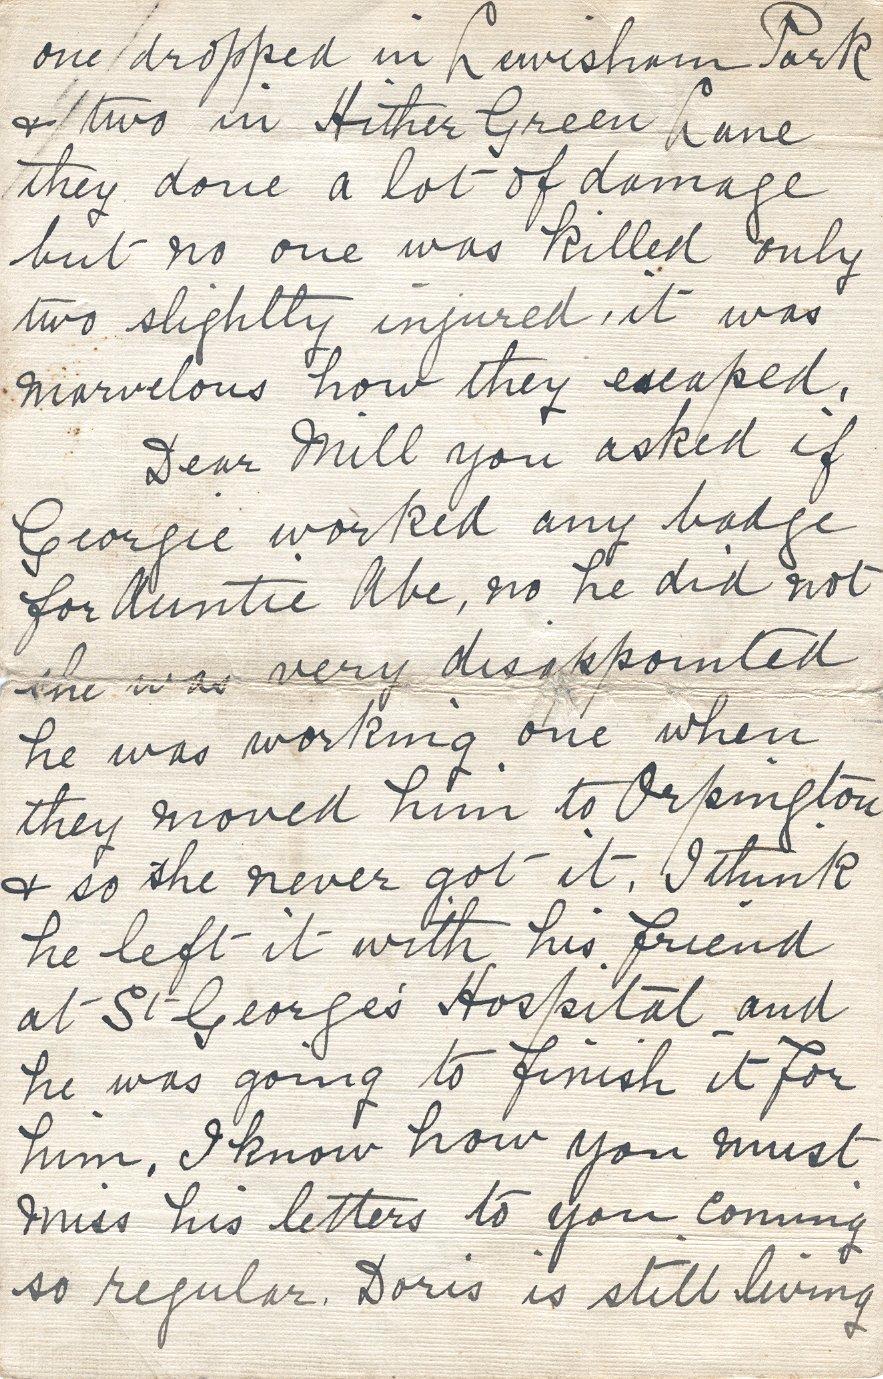 one dropped in Lewisham Park
& two in Hither Green Lane
they done a lot of damage
but no one was killed only
two slightly injured, it was
marvelous how they escaped.
Dear Mill you asked if
Georgie worked any badge
for Auntie Abe, no he did not
she was very disappointed
he was working one when
they moved him to Orpington
& so she never got it. I think
he left it with his friend
at St George's Hospital and
he was going to finish it for
him, I know how you must
miss his letters to you coming
so regular. Doris is still living